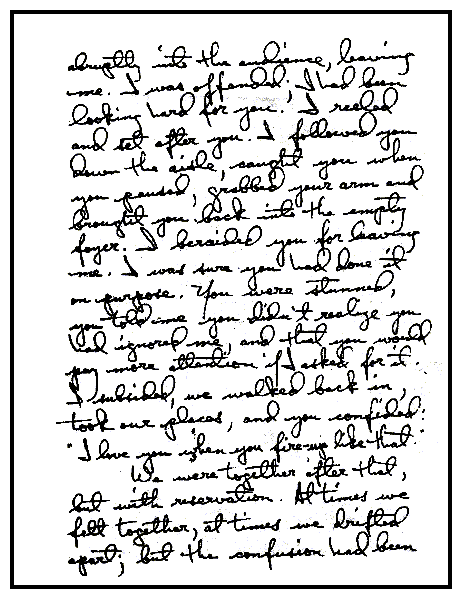 abruptly into the audience, leaving
me. I was offended; I had been
looking hard for you. I reeled
and set after you. I followed you
down the aisle, caught you when
you paused, grabbed your arm and
brought you back into the empty
foyer. I berated you for leaving
me. I was sure you had done it
on purpose. You were stunned,
you told me you didn't realize you
had ignored me, and that you would
pay more attention if I asked for it.
I subsided, we walked back in,
took our places, and you confided:
"I love you when you fire-up like that."
We were together after that,
but with reservation. At times we
felt together, at times we drifted
apart; but the confusion had been